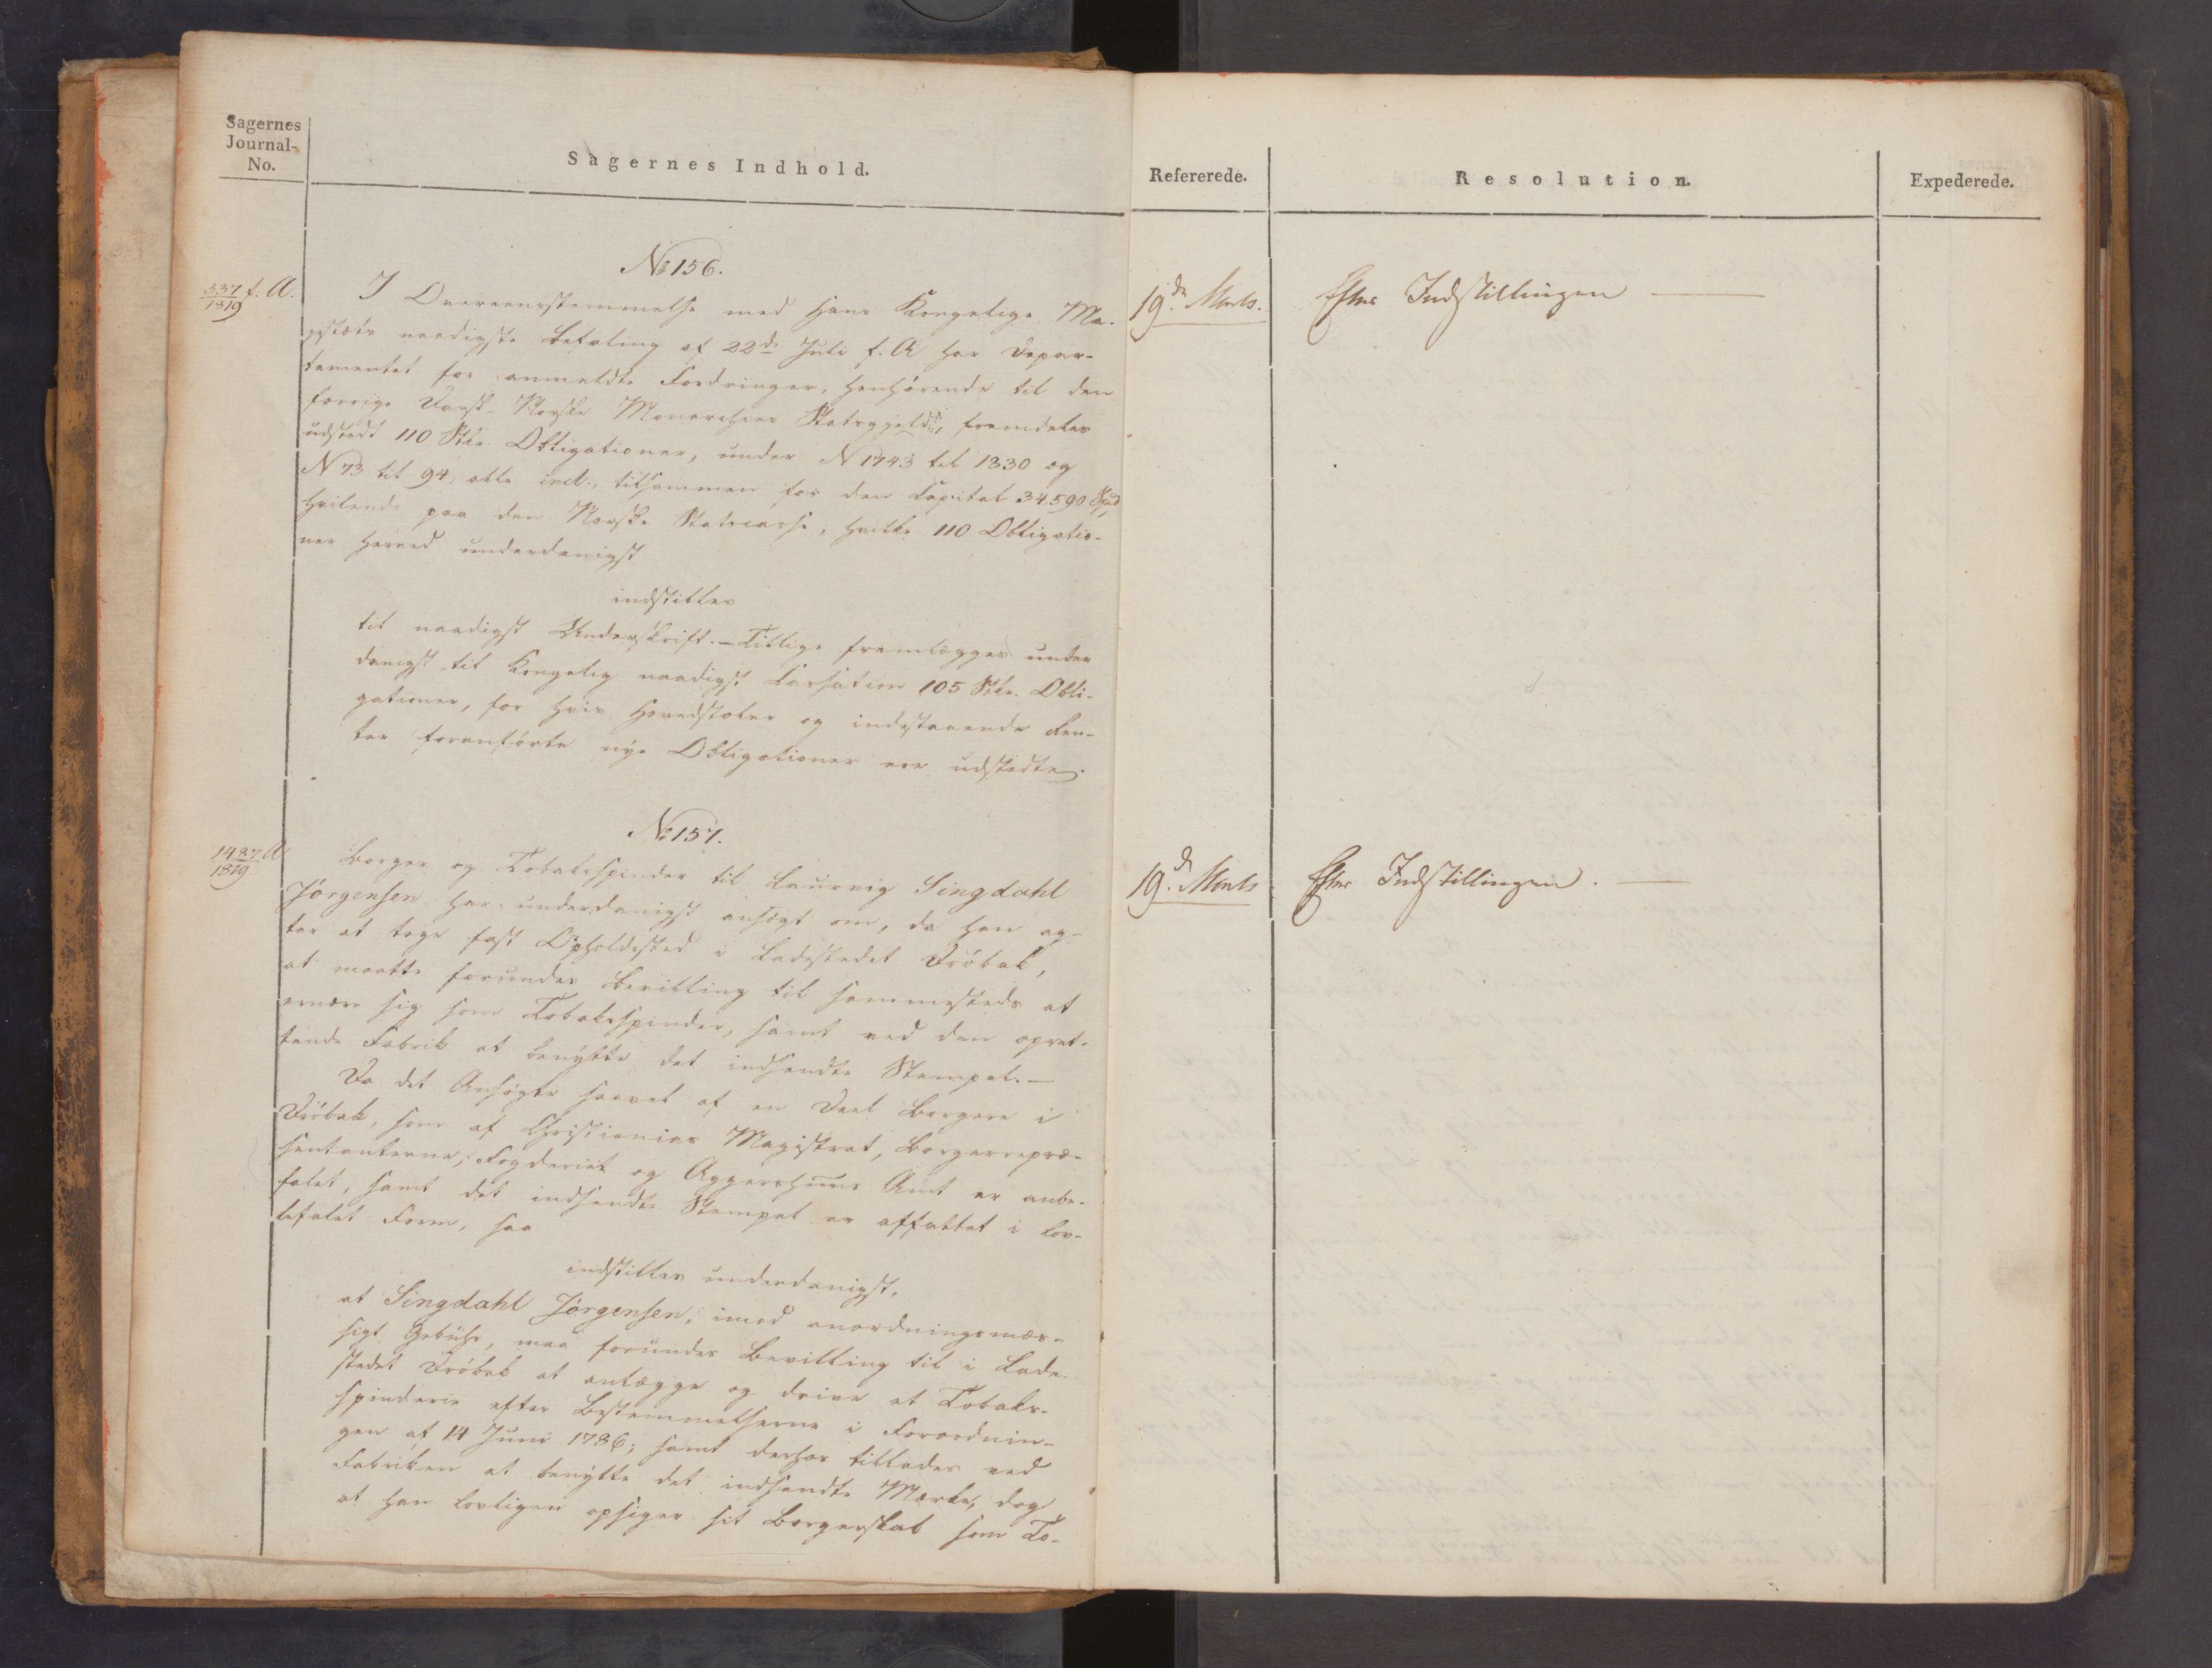 Sagernes
Journal-
No.
Sagernes Indhold.
No 156.
337/1819 f. A.
I Overeensstemmelse med Hans Kongelige Ma-
jestæts naadigste Befaling af 22de Juli f. A har Depar-
tementet for anmeldte Fordringer, henhørende til den
forrige Dansk-Norske Monarchies Statsgjeld, fremdeles
udstedt 110 Stkr. Obligationer, under N 1743 til 1830 og
N 73 til 94, alle incl., tilsammen for den Capital 34.590 Spd
hvilende paa den Norske Statscasse; hvilke 110 Obligatio-
ner herved underdanigst
indstilles
til naadigst Underskrift. – Tillige fremlægges under
danigst til Kongelig naadigst Cassation 105 Stkr. Obli-
gationer, for hvis Hovedstoler og indestaaende Ren-
ter foranførte nye Obligationer ere udstedte.
No 157.
1487/1819 A
Borger og Tobaksspinder til Laurvig Singdahl
Jørgensen har underdanigst ansøgt om, da han ag-
ter at tage fast Opholdssted i Ladestedet Drøbak,
at maatte forundes Bevilling til sammesteds at
ernære sig som Tobaksspinder, samt ved den opret-
tende Fabrik at benytte det indsendte Stempel. –
Da det Ansøgte saavel af en Deel Borgere i
Drøbak, som af Christianias Magistrat, Borgerrepræ-
sentanterne, Fogderiet og Aggershuus Amt er anbe-
falet, samt det indsendte Stempel er affattet i lov-
befalet Form, saa
indstilles underdanigst,
at Singdahl Jørgensen, imod anordningsmæs-
sigt Gebühr, maa forundes Bevilling til i Lade-
stedet Drøbak at anlægge og drive et Tobaks-
spinderie efter Bestemmelserne i Forordnin-
gen af 14 Juni 1786; samt derhos tillades ved
Fabriken at benytte det indsendte Mærke, dog
at han lovligen opsiger sit Borgerskab som To-
Refererede.
Resolution.
Expederede.
19de Marts.
Efter Indstillingen
19de Marts
Efter Indstillingen.